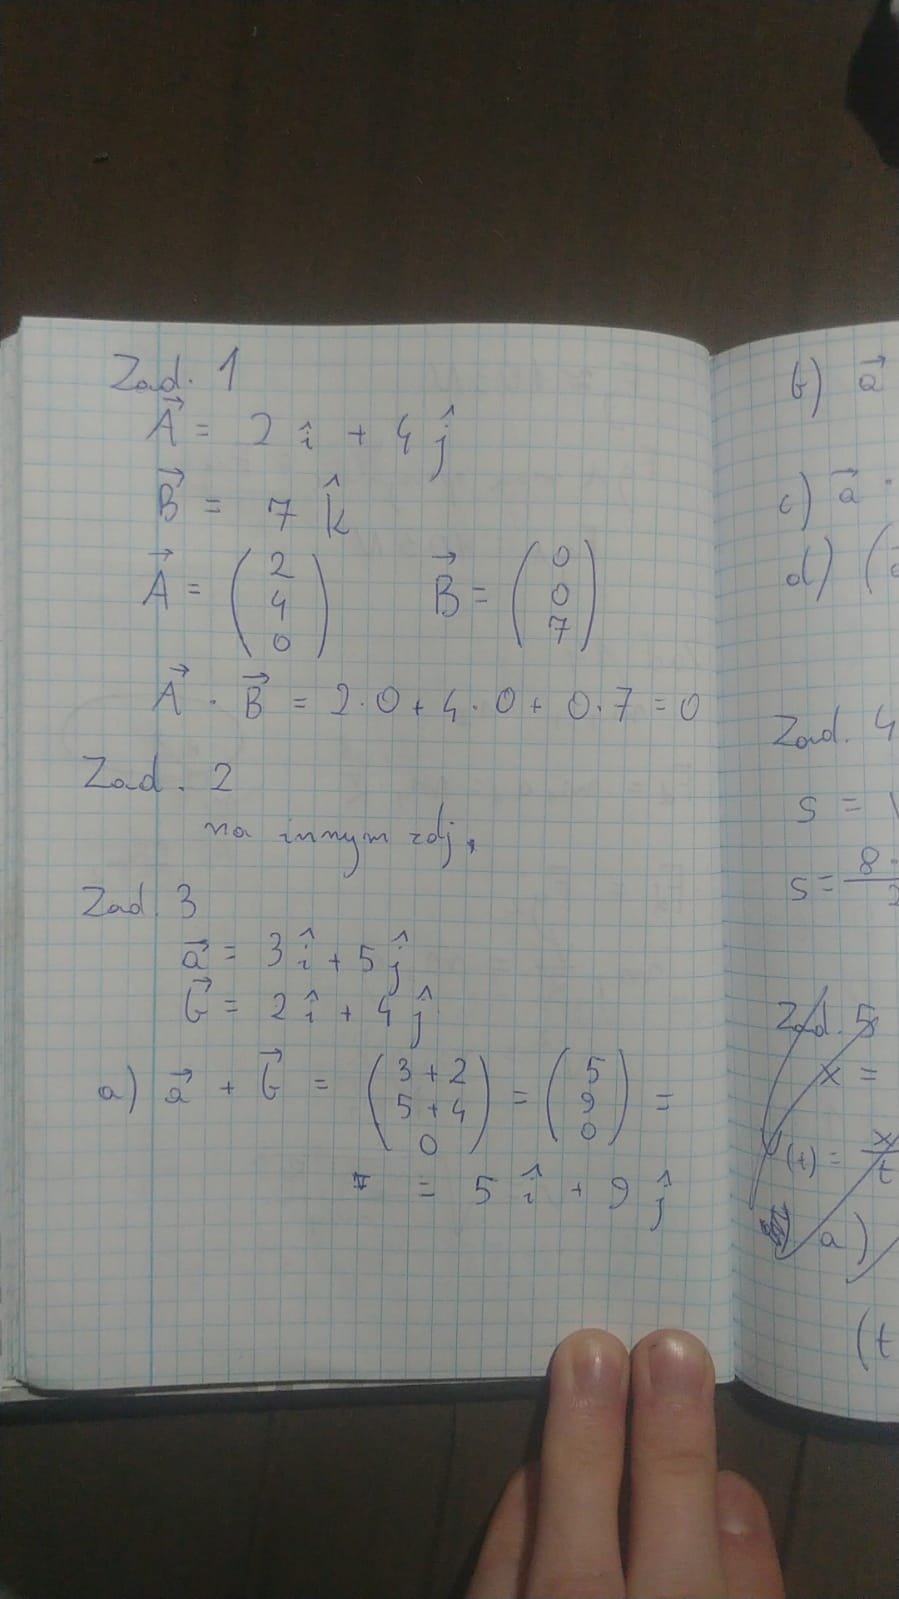 Zad. 1
$\vec{A} = 2\hat{i} + 4\hat{j}$
$\vec{B} = 7\hat{k}$
$\vec{A} = \begin{pmatrix} 2 \\ 4 \\ 0 \end{pmatrix}$ $\vec{B} = \begin{pmatrix} 0 \\ 0 \\ 7 \end{pmatrix}$
$\vec{A} \cdot \vec{B} = 2 \cdot 0 + 4 \cdot 0 + 0 \cdot 7 = 0$
Zad. 2
na innym zdj.
Zad. 3
$\vec{a} = 3\hat{i} + 5\hat{j}$
$\vec{b} = 2\hat{i} + 4\hat{j}$
a) $\vec{a} + \vec{b} = \begin{pmatrix} 3+2 \\ 5+4 \\ 0 \end{pmatrix} = \begin{pmatrix} 5 \\ 9 \\ 0 \end{pmatrix} =$
$= 5\hat{i} + 9\hat{j}$
b) $\vec{a}$
c) $\vec{a} \cdot$
d) (
Zad. 4
s =
s = 8
Zad. 5
x =
(t) = $\frac{x}{t}$
a)
(t